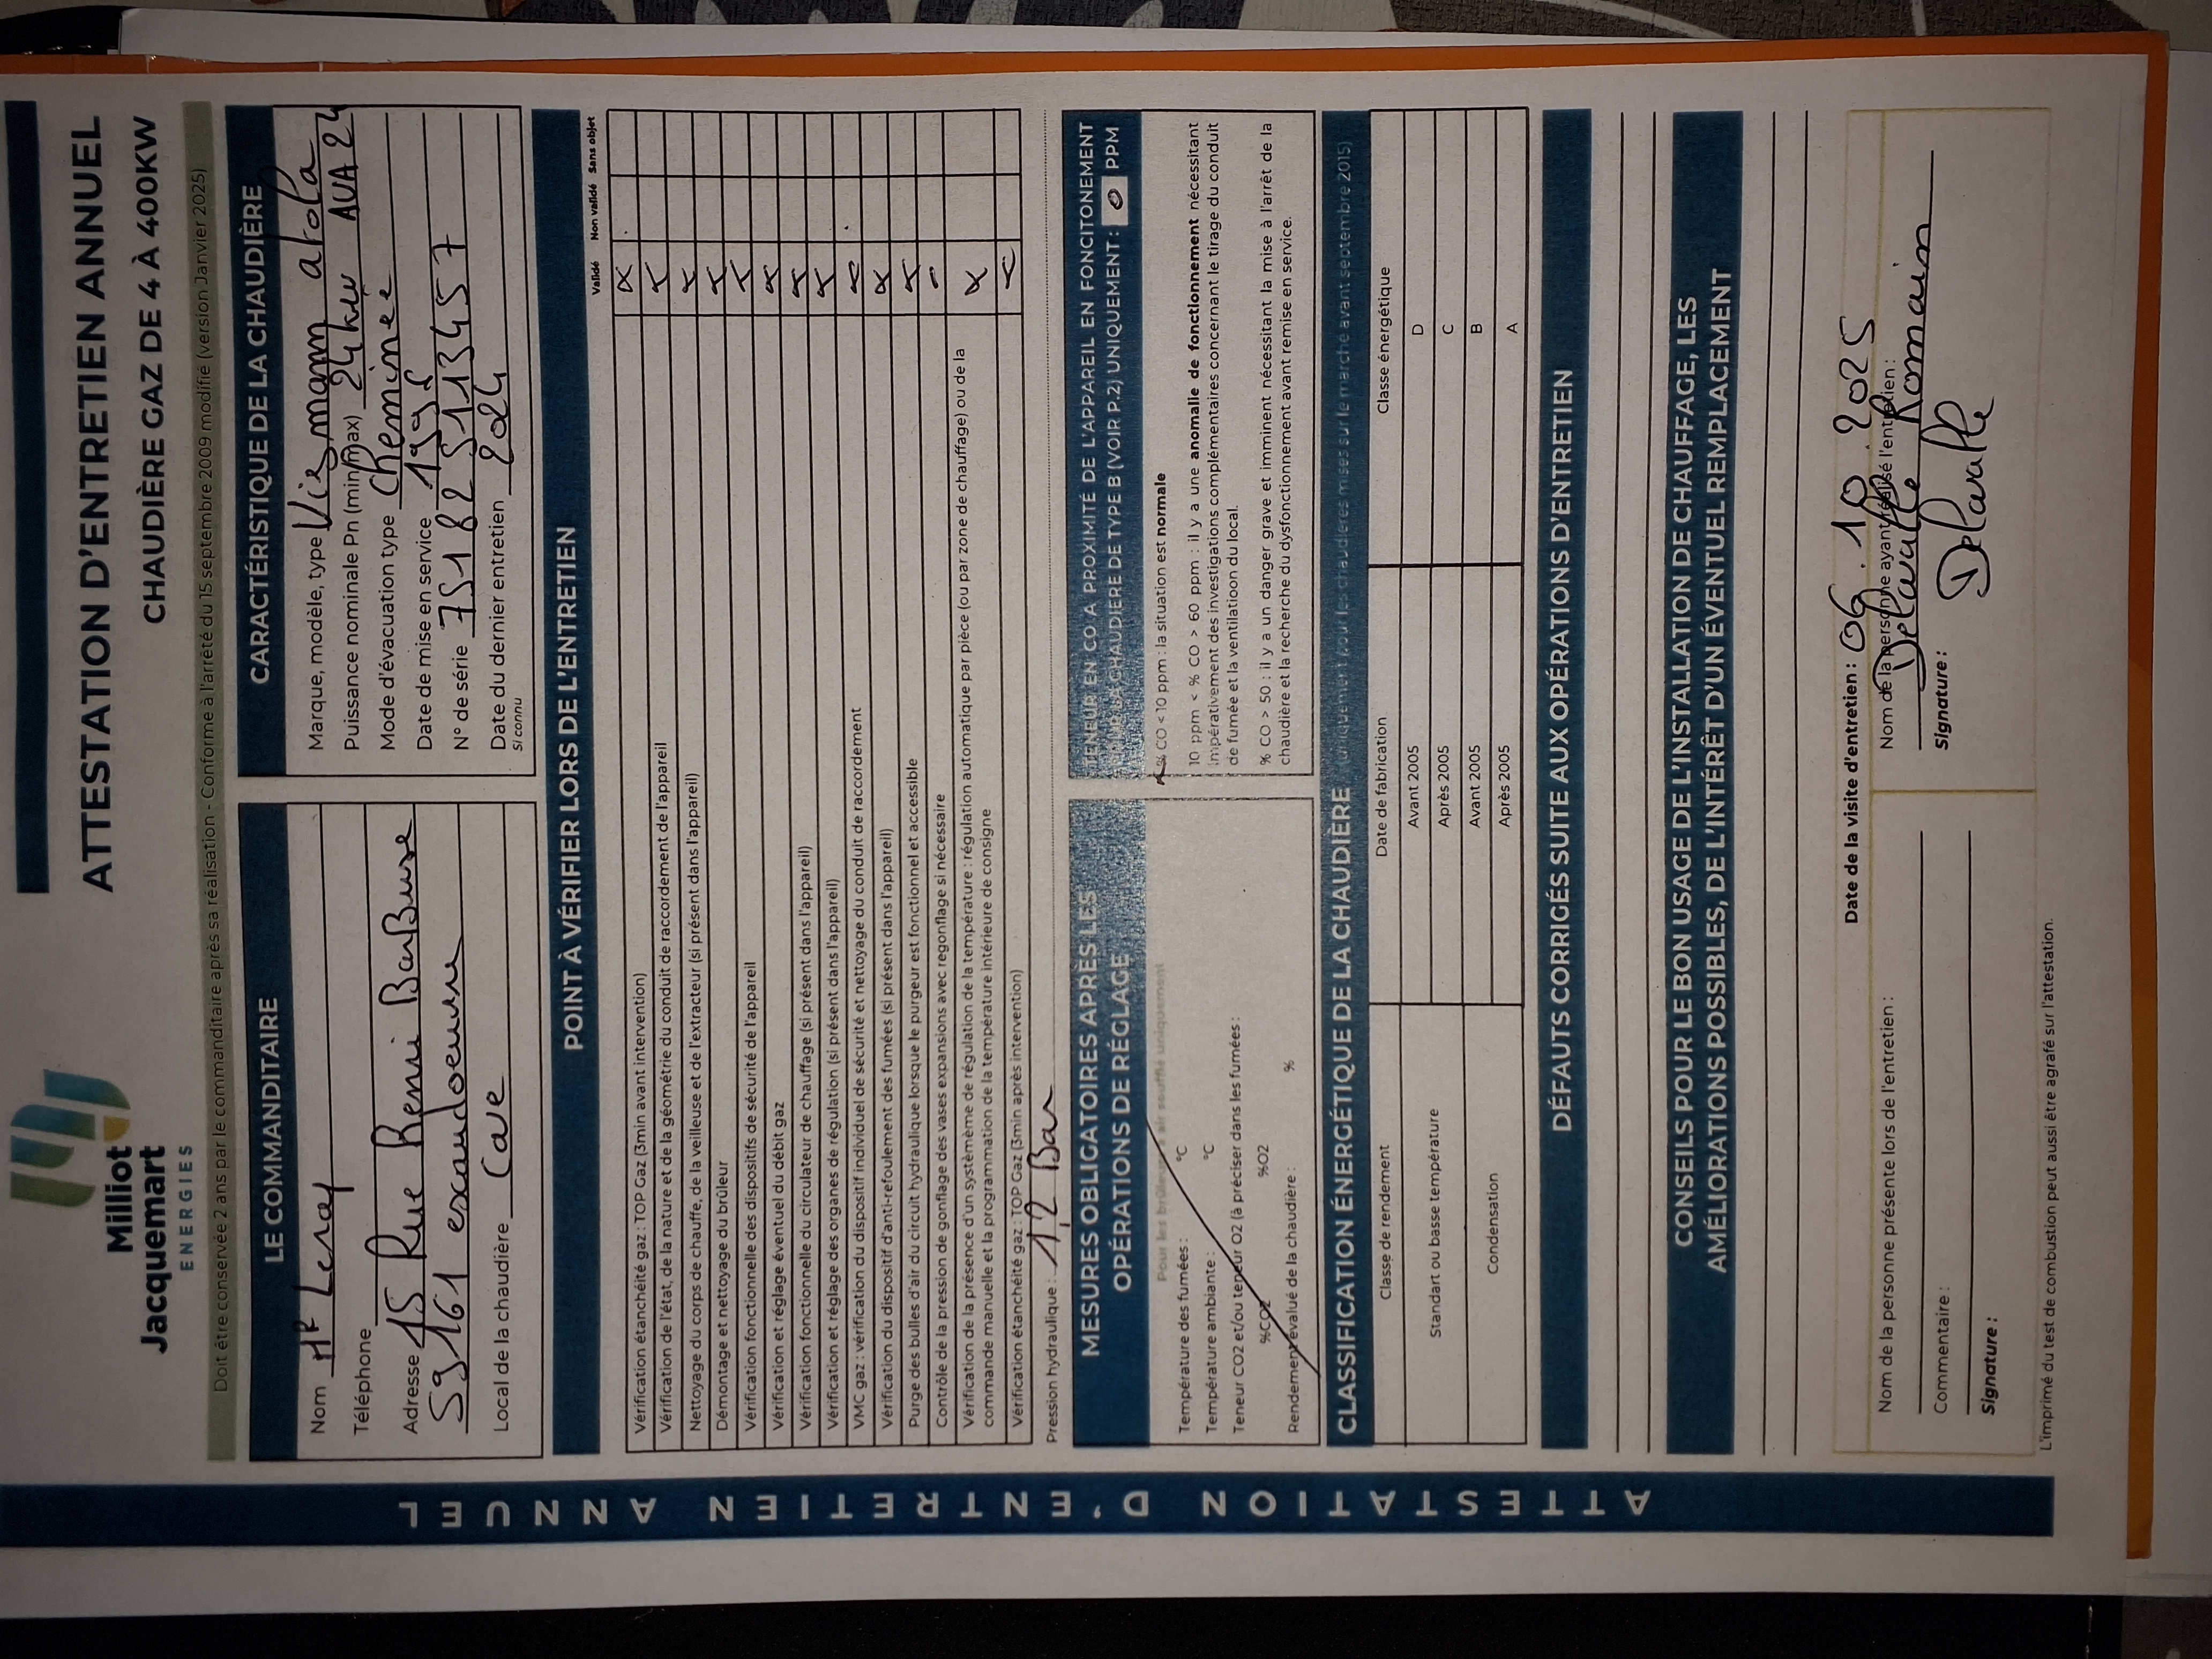 Milliot
Jacquemart
ENERGIES
ATTESTATION D'ENTRETIEN ANNUEL
CHAUDIÈRE GAZ DE 4 À 400KW
Doit être conservée 2 ans par le commanditaire après sa réalisation - Conforme à l'arrêté du 15 septembre 2009 modifié (version Janvier 2025)
LE COMMANDITAIRE
Nom Mr Leray
Téléphone
Adresse 15 Rue Henri BarBusse
59161 escaudoeuvre
Local de la chaudière Cave
CARACTÉRISTIQUE DE LA CHAUDIÈRE
Marque, modèle, type Viesmann atola
Puissance nominale Pn (min/max) 24kw AVA 24
Mode d'évacuation type Cheminée
Date de mise en service 1995
N° de série 75182 51134 57
Date du dernier entretien 2024
Si connu
POINT À VÉRIFIER LORS DE L'ENTRETIEN
Validé Non validé Sans objet
Vérification étanchéité gaz : TOP Gaz (3min avant intervention) x
Vérification de l'état, de la nature et de la géométrie du conduit de raccordement de l'appareil x
Nettoyage du corps de chauffe, de la veilleuse et de l'extracteur (si présent dans l'appareil) x
Démontage et nettoyage du brûleur x
Vérification fonctionnelle des dispositifs de sécurité de l'appareil x
Vérification et réglage éventuel du débit gaz x
Vérification fonctionnelle du circulateur de chauffage (si présent dans l'appareil) x
Vérification et réglage des organes de régulation (si présent dans l'appareil) x
VMC gaz : vérification du dispositif individuel de sécurité et nettoyage du conduit de raccordement
Vérification du dispositif d'anti-refoulement des fumées (si présent dans l'appareil) x
Purge des bulles d'air du circuit hydraulique lorsque le purgeur est fonctionnel et accessible x
Contrôle de la pression de gonflage des vases expansions avec regonflage si nécessaire -
Vérification de la présence d'un systèmème de régulation de la température : régulation automatique par pièce (ou par zone de chauffage) ou de la
commande manuelle et la programmation de la température intérieure de consigne x
Vérification étanchéité gaz : TOP Gaz (3min après intervention)
Pression hydraulique : 1,2 Bar
MESURES OBLIGATOIRES APRÈS LES
OPÉRATIONS DE RÉGLAGE
Pour les brûleurs à air soufflé uniquement
Température des fumées : °C
Température ambiante : °C
Teneur CO2 et/ou teneur O2 (à préciser dans les fumées) :
%CO2 %O2
Rendement évalué de la chaudière : %
TENEUR EN CO A PROXIMITÉ DE L'APPAREIL EN FONCITONEMENT
CHAUDIERE DE TYPE B (VOIR P.2) UNIQUEMENT : 0 PPM
x % CO < 10 ppm : la situation est normale
10 ppm < % CO > 60 ppm : il y a une anomalie de fonctionnement nécessitant
impérativement des investigations complémentaires concernant le tirage du conduit
de fumée et la ventilation du local.
% CO > 50 : il y a un danger grave et imminent nécessitant la mise à l'arrêt de la
chaudière et la recherche du dysfonctionement avant remise en service.
CLASSIFICATION ÉNERGÉTIQUE DE LA CHAUDIÈRE (uniquement pour les chaudières mises sur le marche avant septembre 2015)
Classe de rendement Date de fabrication Classe énergétique
Standart ou basse température Avant 2005 D
Après 2005 C
Condensation Avant 2005 B
Après 2005 A
DÉFAUTS CORRIGÉS SUITE AUX OPÉRATIONS D'ENTRETIEN
CONSEILS POUR LE BON USAGE DE L'INSTALLATION DE CHAUFFAGE, LES
AMÉLIORATIONS POSSIBLES, DE L'INTÉRÊT D'UN ÉVENTUEL REMPLACEMENT
Date de la visite d'entretien : 06.10.2025
Nom de la personne présente lors de l'entretien :
Commentaire :
Signature :
Nom de la personne ayant réalisé l'entretien :
Delavalle Romain
Signature : Delavalle
L'imprimé du test de combustion peut aussi être agrafé sur l'attestation.
ATTESTATION D'ENTRETIEN ANNUEL